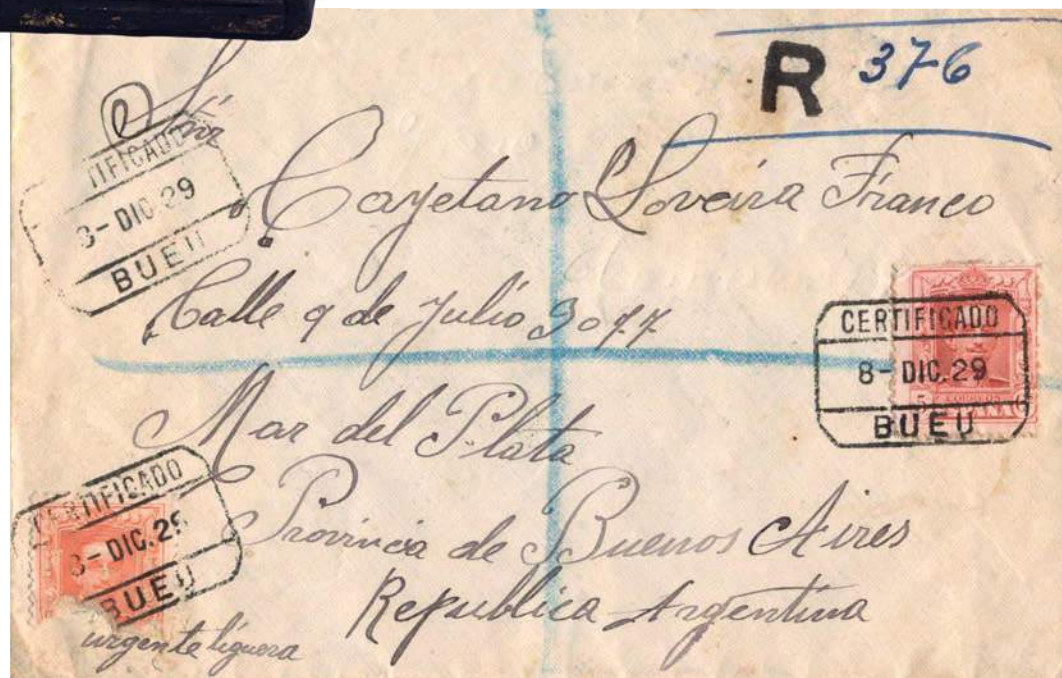 R 376
Sr.
CERTIFICADO
8-DIC.29
BUEU
Cayetano Loveira Franco
Calle 9 de Julio 3077
CERTIFICADO
8-DIC.29
BUEU
Mar del Plata
CERTIFICADO
8-DIC.29
BUEU
Provincia de Buenos Aires
Republica Argentina
urgente liguera